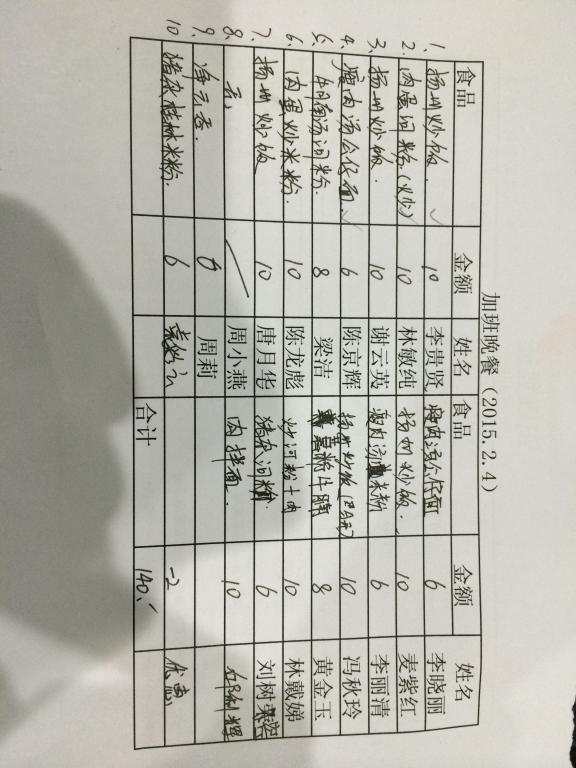 加班晚餐（2015.2.4）
食品 金额 姓名 食品 金额 姓名
1. 扬州炒饭. 10 李贵贤 瘦肉汤公仔面 6 李晓丽
2. 肉蛋河粉(炒) 10 林敏纯 扬州炒饭. 10 麦紫红
3. 扬州炒饭. 10 谢云英 瘦肉汤米粉 6 李丽清
4. 瘦肉汤公仔面. 6 陈京辉 扬州炒饭 10 冯秋玲
5. 牛腩汤河粉. 8 梁洁 牛腩 8 黄金玉
6. 肉蛋炒米粉. 10 陈龙彪 炒河粉+肉 10 林戴娣
7. 扬州炒饭 10 唐月华 猪杂河粉. 6 刘树容
8. 无. 周小燕 肉拌面. 10
9. 6 周莉
10 猪杂桂林米粉. 6 -2 优惠
合计 140.